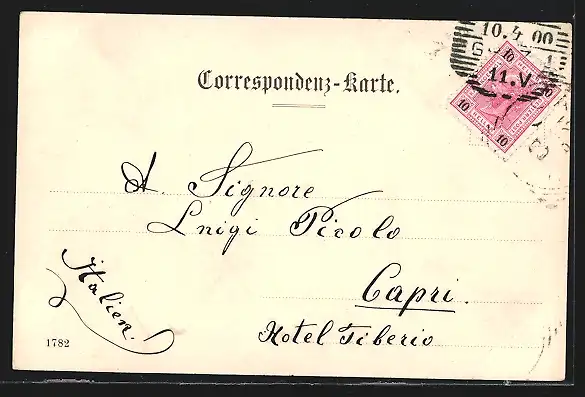 10.4.00
11.V.
10 10
10 10
Correspondenz-Karte.
A. Signore
Luigi Picolo
Capri.
Hotel Tiberio
Italien.
1782